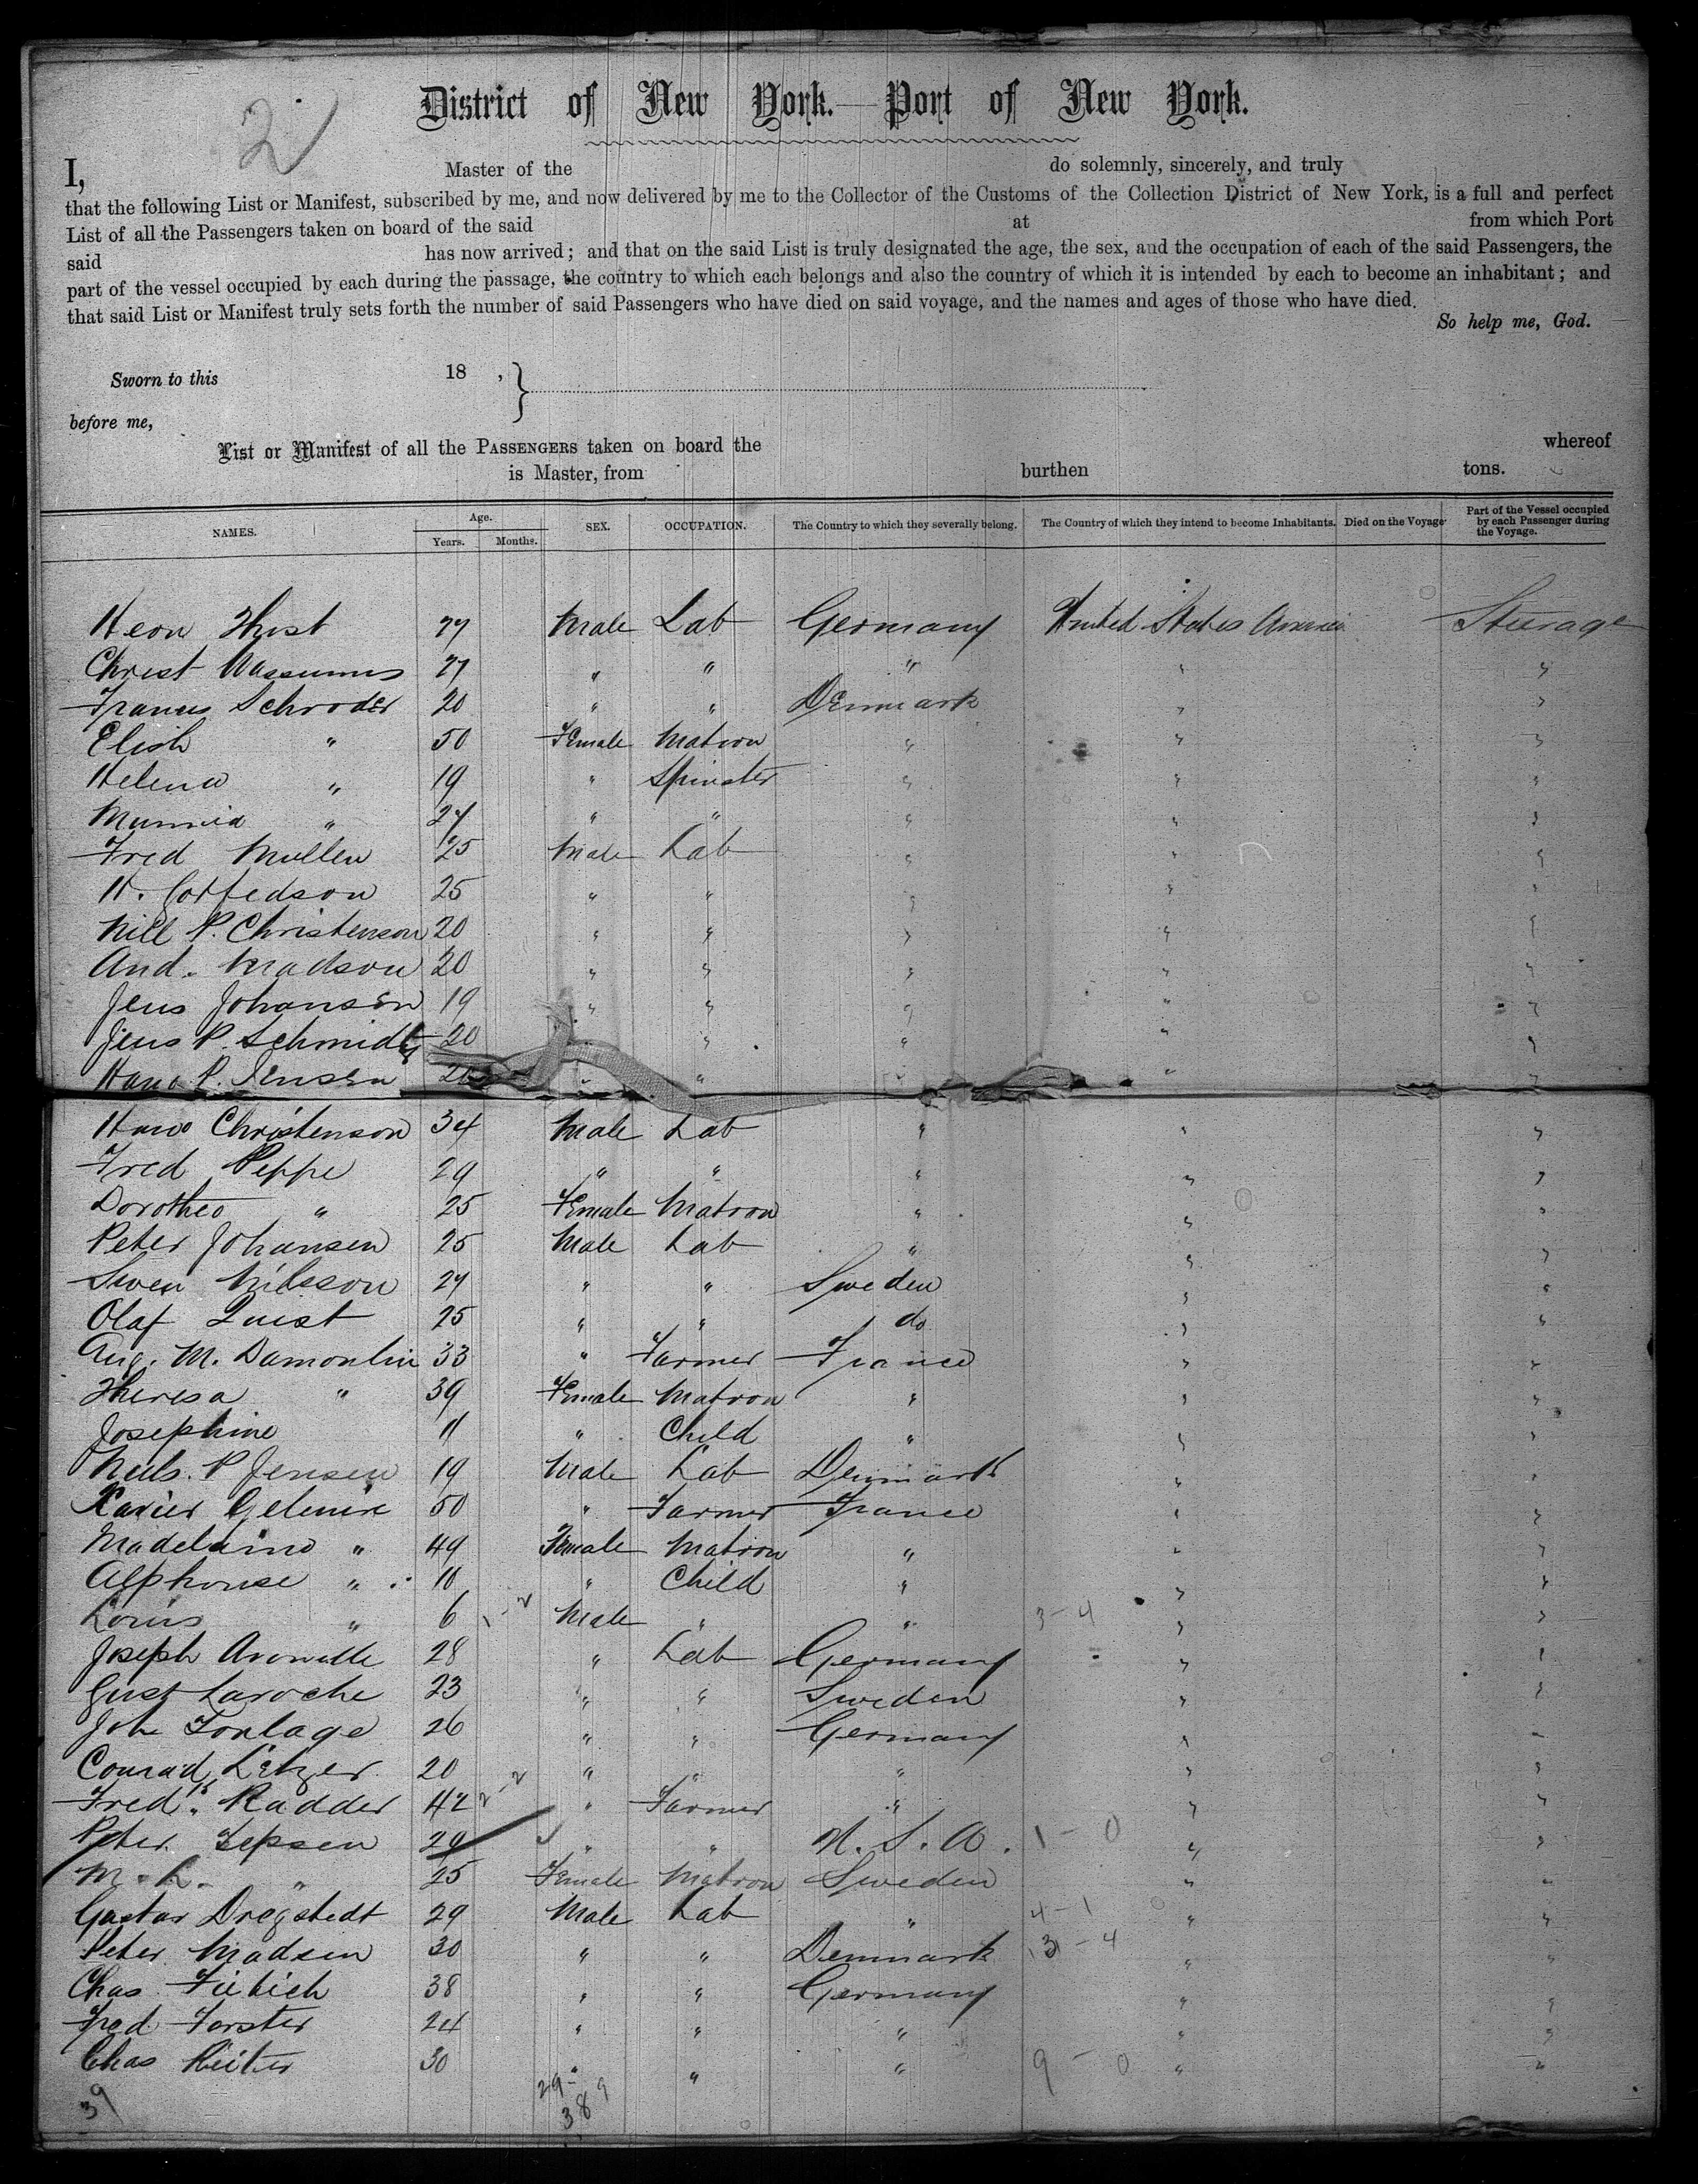 2
District of New York.—Port of New York.
I, Master of the do solemnly, sincerely, and truly
that the following List or Manifest, subscribed by me, and now delivered by me to the Collector of the Customs of the Collection District of New York, is a full and perfect
List of all the Passengers taken on board of the said at from which Port
said has now arrived; and that on the said List is truly designated the age, the sex, and the occupation of each of the said Passengers, the
part of the vessel occupied by each during the passage, the country to which each belongs and also the country of which it is intended by each to become an inhabitant; and
that said List or Manifest truly sets forth the number of said Passengers who have died on said voyage, and the names and ages of those who have died.
So help me, God.
Sworn to this 18 ,
before me,
List or Manifest of all the PASSENGERS taken on board the whereof
is Master, from burthen tons.
NAMES. Age. Years. Months. SEX. OCCUPATION. The Country to which they severally belong. The Country of which they intend to become Inhabitants. Died on the Voyage Part of the Vessel occupied by each Passenger during the Voyage.
Male Lab Germany United States America Steerage
Christ " " " " "
Francis Schroder 20 " " Denmark " "
" 50 Female Matron " " "
Helena " 19 " Spinster " " "
" " " " " "
Fred Mullen 25 Male Lab " " "
25 " " " " "
Nill P. Christenson 20 " " " " "
And. Madson 20 " " " " "
Jens Johansen 19 " " " " "
Jens P. Schmidt 20 " " " "
Hans P. Jensen " " " "
Hans Christenson 34 Male Lab " " "
Fred Peppe 29 " " " " "
Dorothea " 25 Female Matron " " "
Peter Johansen 25 Male Lab " " "
Swen Nilsson " " Sweden " "
Olaf Quist 25 " " do " "
Aug. M. Damonlin 33 " Farmer France " "
Theresa " 39 Female Matron " " "
Josephine 11 " Child " " "
Neils. P Jensen 19 Male Lab Denmark " "
Xavier 50 " Farmer France " "
Madelaine " 49 Female Matron " " "
Alphonse " 10 " Child " " "
Louis " 6 Male " " 3-4 " "
Joseph 28 " Lab Germany " "
Gust Laroche 23 " " Sweden " "
Joh Fortlage 26 " " Germany " "
Conrad Letzer 20 " " " " "
Fredk. Radder 42 " Farmer " " "
Peter Jepsen 29 " " U. S. A. 1-0 " "
M. L. " 25 Female Matron Sweden " "
Gustav Dregstedt 29 Male Lab " 4-1 " "
Peter Madsen 30 " " Denmark 3-4 " "
Chas Fiebich 38 " " Germany " "
Fred Forster 24 " " " " "
Chas Reiter 30 " " " 9-0 " "
39 29- 389